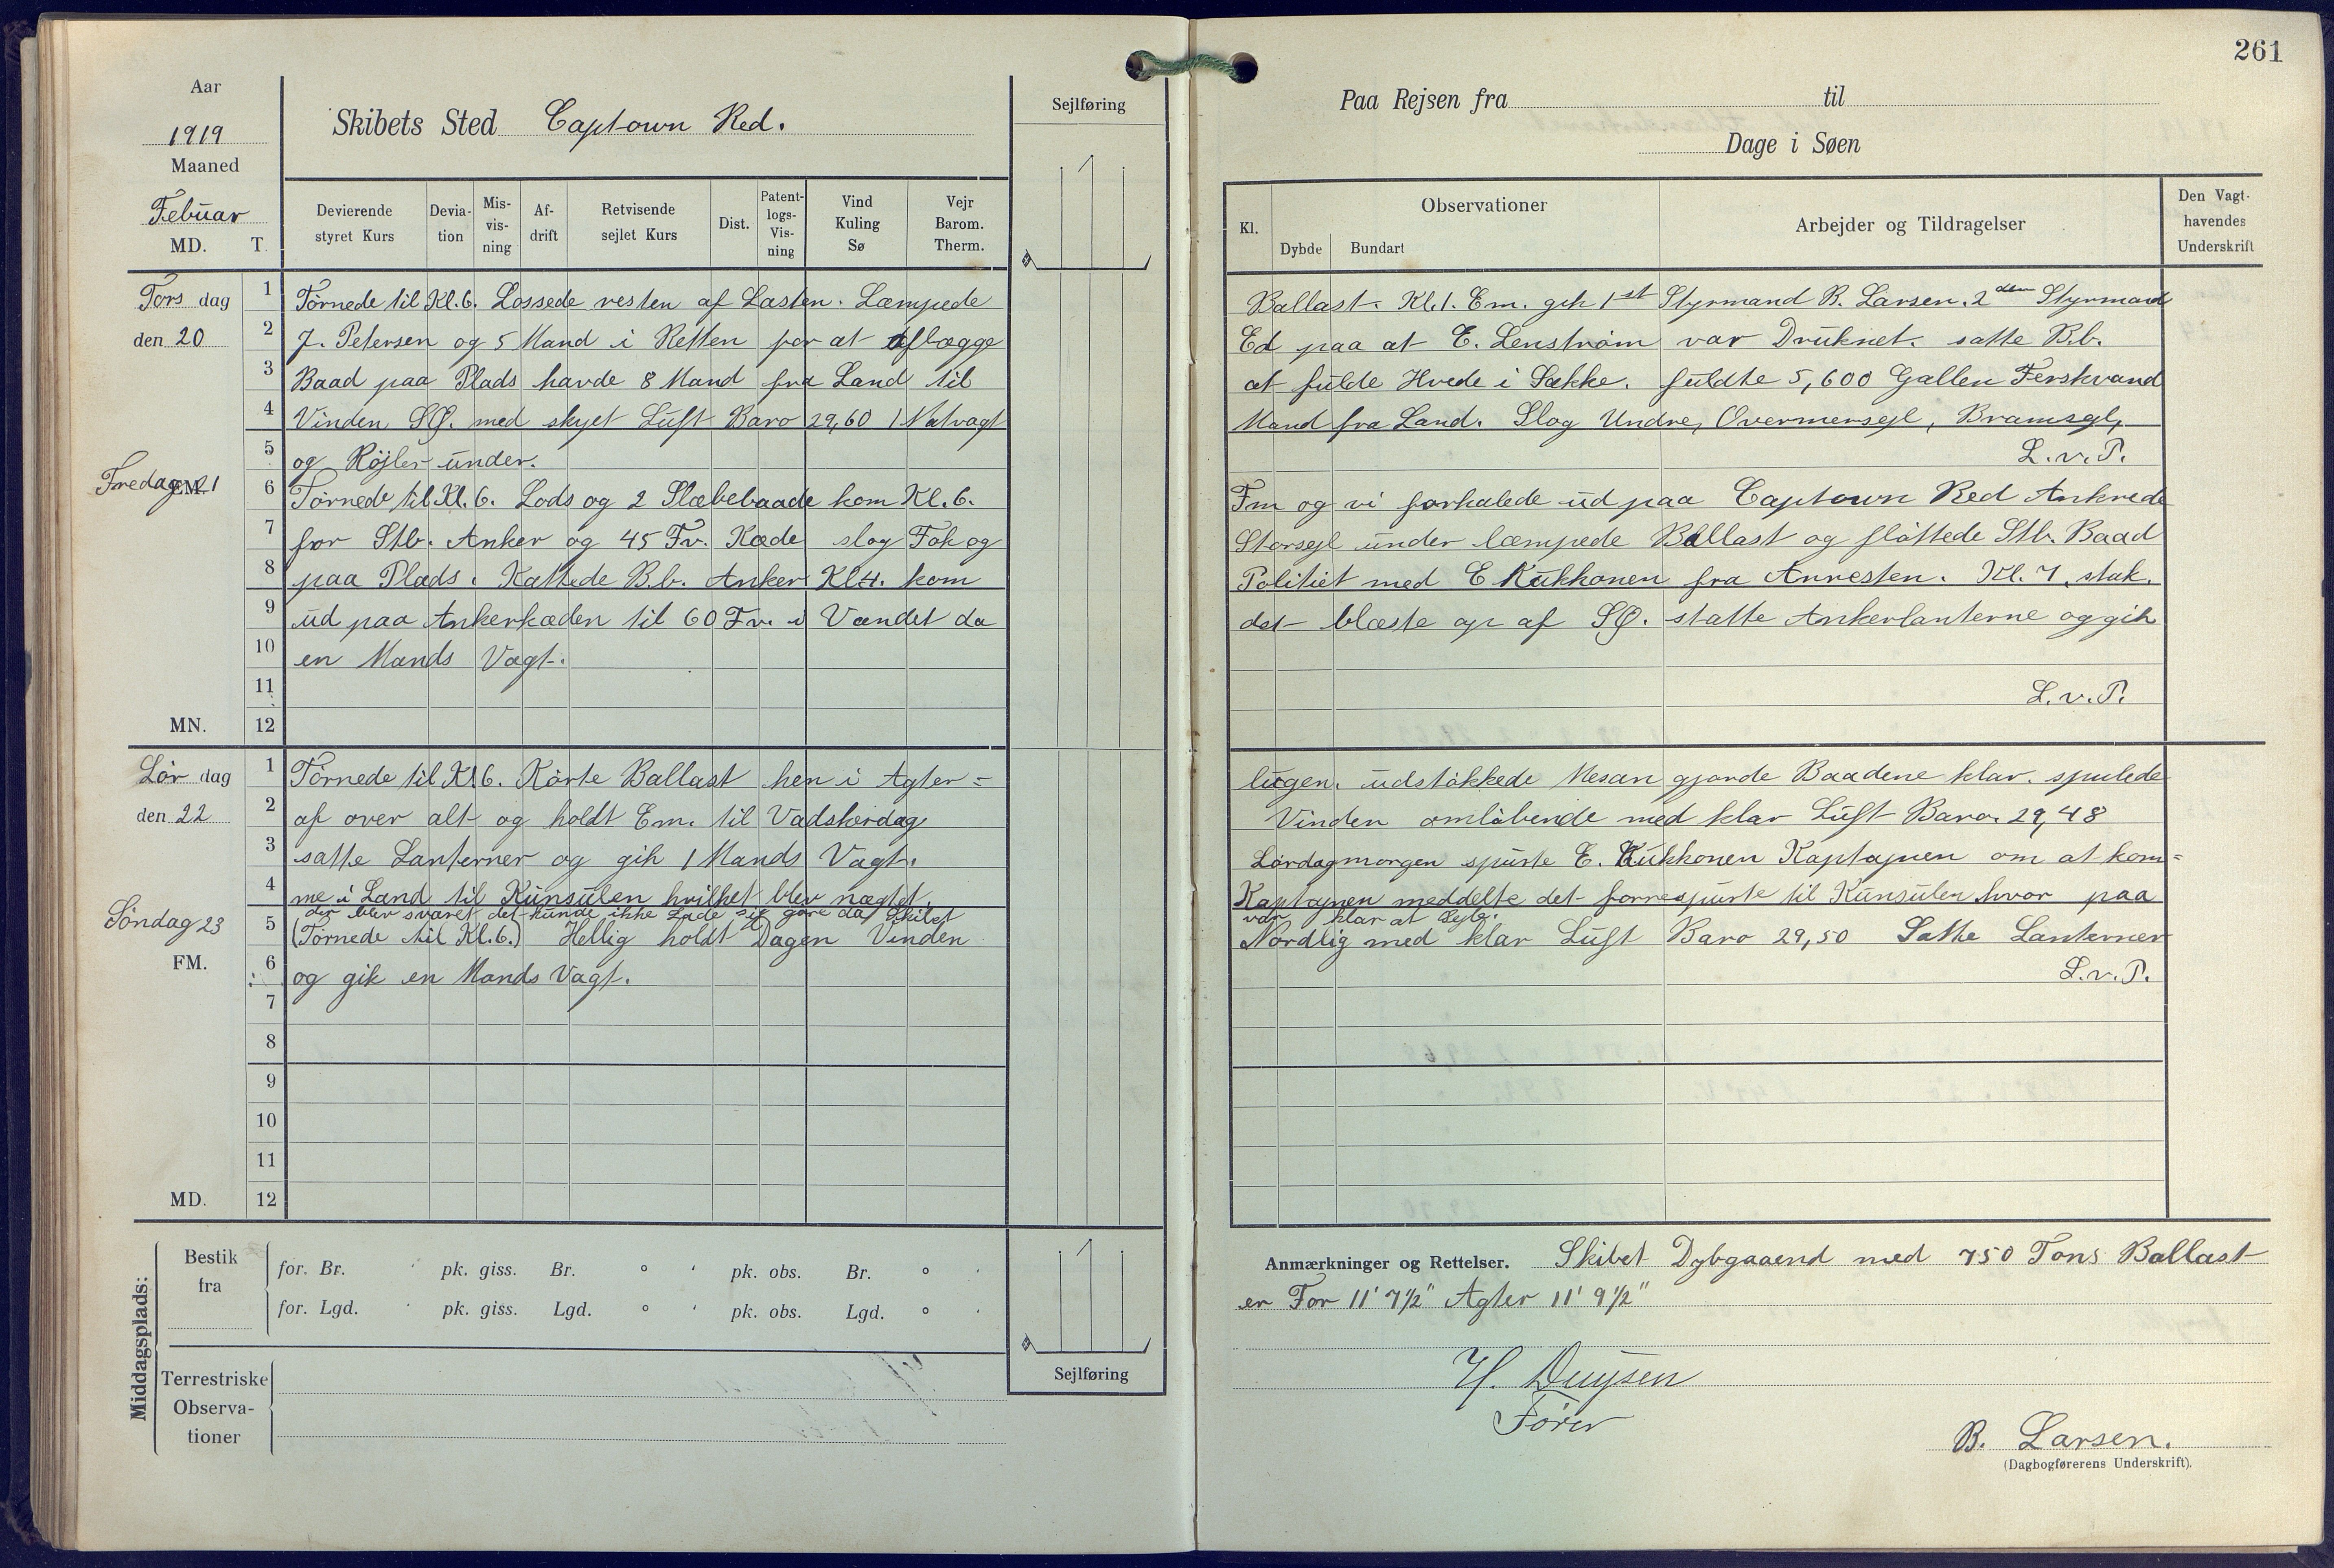 261
Aar
1919
Maaned
Febuar
MD. T.
Skibets Sted Captown Red.
Sejlføring
Devierende styret Kurs
Devia-tion
Mis-vis-ning
Af-drift
Retvisende sejlet Kurs
Dist.
Patent-logs-Vis-ning
Vind Kuling Sø
Vejr Barom. Therm.
Tors dag
den 20
1 Törnede til Kl. 6. Lossede resten af Lasten. Læmpede
2 J. Petersen og 5 Mand i Retten for at aflægge
3 Baad paa Plads havde 8 Mand fra Land til
4 Vinden SØ. med skyet Luft Baro 29,60 1 Natvagt
5 og Röjler under.
Fredag 21
EM.
6 Törnede til Kl. 6. Lods og 2 Slæbebaade kom Kl. 6.
7 for Stb. Anker og 45 Fv. Kæde slog Fok og
8 paa Plads. Kattede B.b. Anker Kl 4. kom
9 ud paa Ankerkæden til 60 Fv. i Vandet da
10 en Mands Vagt.
11
MN. 12
Lör dag
den 22
1 Törnede til Kl 6. Körte Ballast hen i Agter=
2 af over alt og holdt Em. til Vadskerdag
3 satte Lanterner og gik 1 Mands Vagt.
4 me i Land til Kunsulen hvilket blev nægtet.
der blev svaret det kunde ikke Lade sig göre da Skibet
Söndag 23
5 (Törnede til Kl. 6.) Hellig holdt Dagen Vinden
FM.
6 og gik en Mands Vagt.
7
8
9
10
11
MD. 12
Middagsplads:
Bestik fra
for. Br. ' pk. giss. Br. ° ' pk. obs. Br. ° '
for. Lgd. ' pk. giss. Lgd. ° ' pk. obs. Lgd. ° '
Terrestriske
Observa-
tioner
Sejlføring
Paa Rejsen fra til
Dage i Søen
Kl.
Observationer
Dybde Bundart
Arbejder og Tildragelser
Den Vagt-
havendes
Underskrift
Ballast. Kl. 1. Em. gik 1st Styrmand B. Larsen. 2den Styrmand
Ed paa at E. Lenström var Druknet. satte B.b.
at fulde Hvede i Sække. fuldte 5,600 Gallen Ferskvand
Mand fra Land. Slog Undre, Overmersejl, Bramsejl,
L.v.P.
Fm og vi forhalede ud paa Captown Red Ankrede
Storsejl under læmpede Ballast og flöttede Stb. Baad
Politiet med E Kukkonen fra Arresten. Kl. 7. stak.
det blæste op af SØ. statte Ankerlanterne og gik
L.v.P.
lugen. udstökkede Mesan gjorde Baadene klar. spulede
Vinden omlöbende med klar Luft Baro. 29,48
Lördagmorgen spurte E. Kukkonen Kaptajnen om at kom=
Kaptajnen meddelte det forrespurte til Kunsulen hvor paa
var klar at Sejle.
Nordlig med klar Luft Baro 29,50 Satte Lanterner
L.v.P.
Anmærkninger og Rettelser. Skibet Dybgaaend med 750 Tons Ballast
er For 11' 7½" Agter 11' 9½"
H. Duysen
Förer
B. Larsen.
(Dagbogførerens Underskrift).